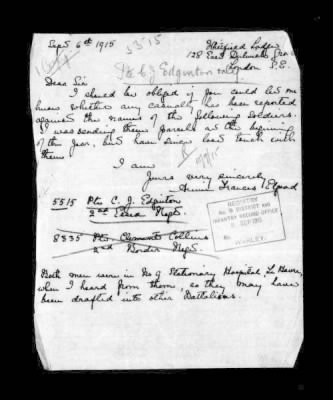 Sept 6th 1915
Whitfield Lodge
128 East Dulwich Gro.
London S.E.
5515
Pte C J Edginton
Dear Sir
I should be obliged if you could let me
know whether any casualty has been reported
against the names of the following soldiers.
I was sending them parcels at the beginning
of this year, but have since lost touch with
them
I am
Yours very sincerely
Annie Frances
5515 Pte C. J. Edginton
2nd Essex Regt.
8335 Pte. Clement Collins
2nd Border Regt.
REGISTRY
No. 9 DISTRICT AND
INFANTRY RECORD OFFICE
SEP 1915
No.
WARLEY.
Both men were in No 9 Stationary Hospital Le Havre,
when I heard from them, so they may have
been drafted into other Battalions.